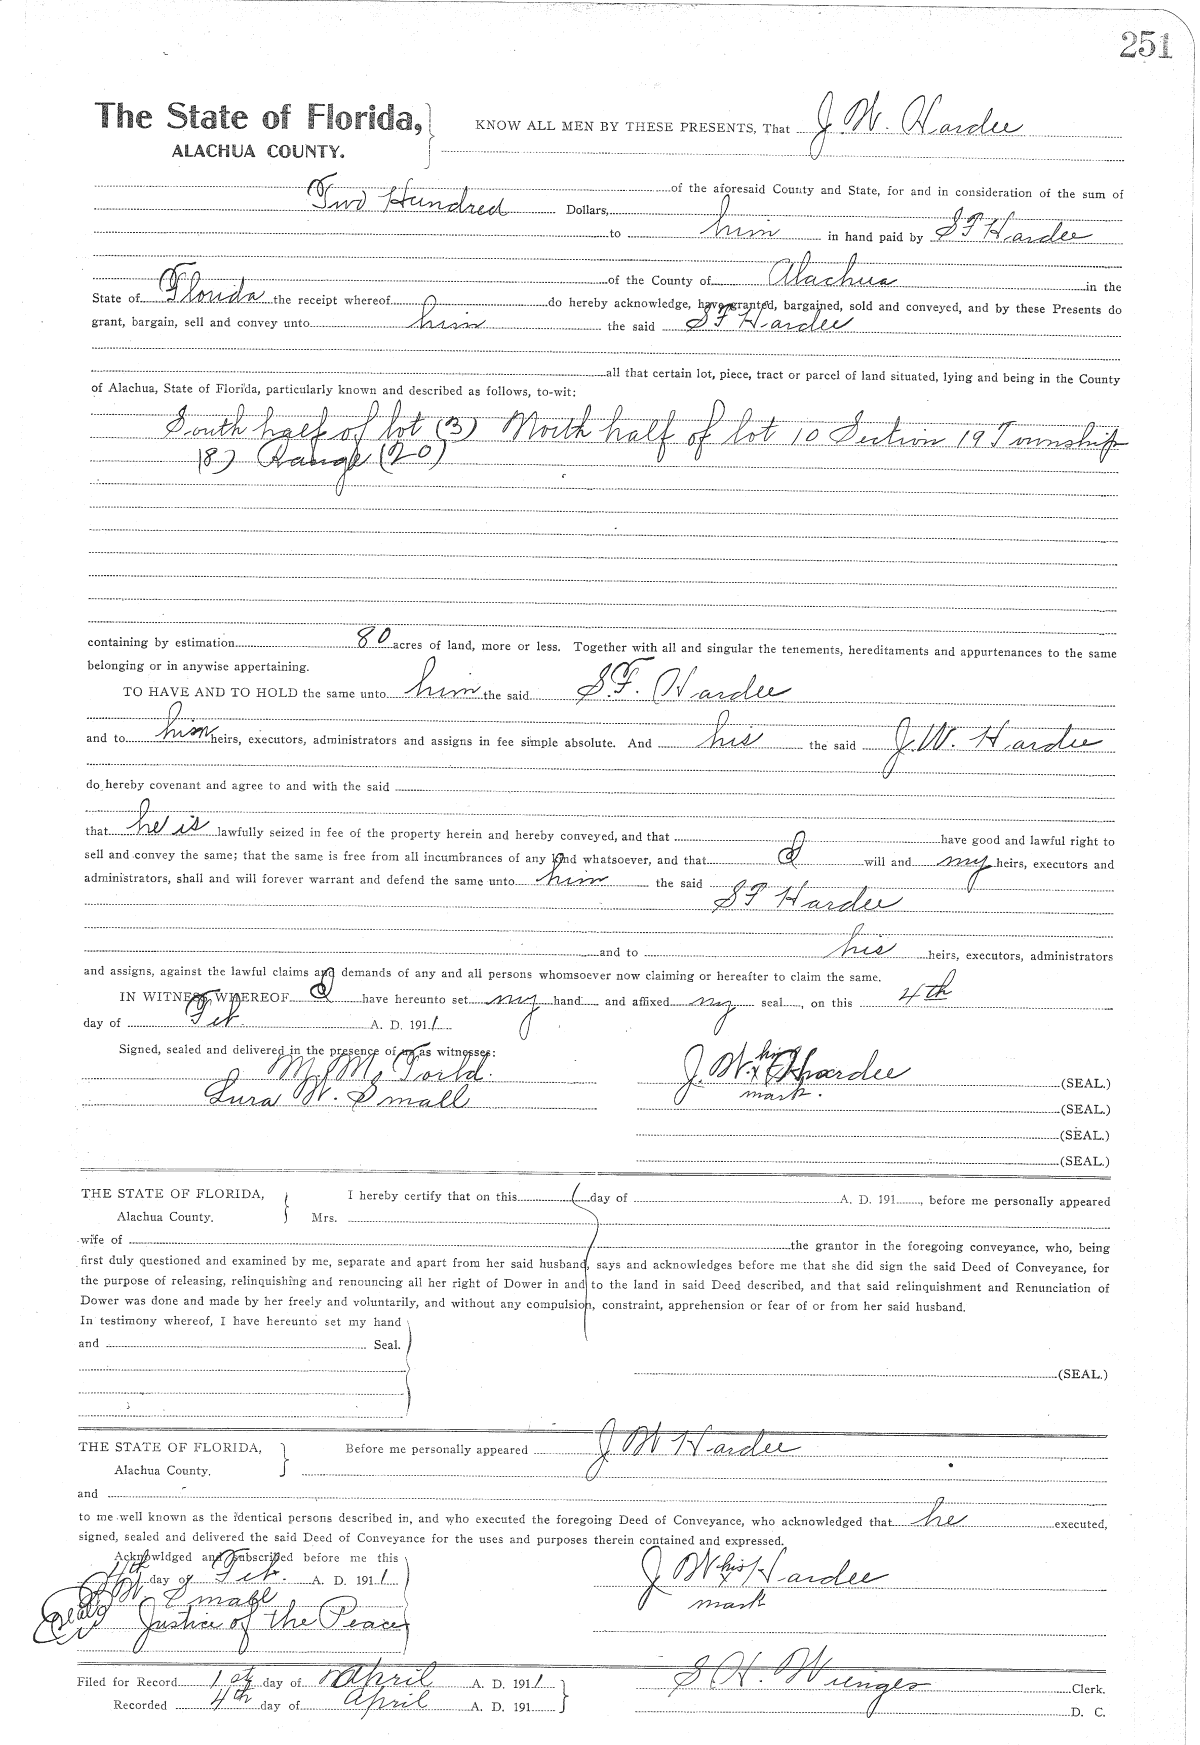 251
The State of Florida,
ALACHUA COUNTY.
KNOW ALL MEN BY THESE PRESENTS, That J. W. Hardee
of the aforesaid County and State, for and in consideration of the sum of
Two Hundred Dollars,
to him in hand paid by S F Hardee
of the County of Alachua in the
State of Florida the receipt whereof do hereby acknowledge, have granted, bargained, sold and conveyed, and by these Presents do
grant, bargain, sell and convey unto him the said S F Hardee
all that certain lot, piece, tract or parcel of land situated, lying and being in the County
of Alachua, State of Florida, particularly known and described as follows, to-wit:
South half of lot (3) North half of lot 10 Section 19 Township
18) Range (20)
containing by estimation 80 acres of land, more or less. Together with all and singular the tenements, hereditaments and appurtenances to the same
belonging or in anywise appertaining.
TO HAVE AND TO HOLD the same unto him the said S. F. Hardee
and to him heirs, executors, administrators and assigns in fee simple absolute. And his the said J. W. Hardee
do hereby covenant and agree to and with the said
that he is lawfully seized in fee of the property herein and hereby conveyed, and that have good and lawful right to
sell and convey the same; that the same is free from all incumbrances of any kind whatsoever, and that I will and my heirs, executors and
administrators, shall and will forever warrant and defend the same unto him the said
S F Hardee
and to his heirs, executors, administrators
and assigns, against the lawful claims and demands of any and all persons whomsoever now claiming or hereafter to claim the same.
IN WITNESS WHEREOF I have hereunto set my hand and affixed my seal, on this 4th
day of Feb. A. D. 1911
Signed, sealed and delivered in the presence of as witnesses:
M. M.
Lura W. Small
J. W. his x Hardee (SEAL.)
mark.
(SEAL.)
(SEAL.)
(SEAL.)
THE STATE OF FLORIDA,
Alachua County.
I hereby certify that on this day of A. D. 191 , before me personally appeared
Mrs.
wife of the grantor in the foregoing conveyance, who, being
first duly questioned and examined by me, separate and apart from her said husband, says and acknowledges before me that she did sign the said Deed of Conveyance, for
the purpose of releasing, relinquishing and renouncing all her right of Dower in and to the land in said Deed described, and that said relinquishment and Renunciation of
Dower was done and made by her freely and voluntarily, and without any compulsion, constraint, apprehension or fear of or from her said husband.
In testimony whereof, I have hereunto set my hand
and Seal.
(SEAL.)
THE STATE OF FLORIDA,
Alachua County.
Before me personally appeared J W Hardee
and
to me well known as the identical persons described in, and who executed the foregoing Deed of Conveyance, who acknowledged that he executed,
signed, sealed and delivered the said Deed of Conveyance for the uses and purposes therein contained and expressed.
Acknowldged and subscribed before me this
4th day of Feb. A. D. 1911
W Small
(Seal) Justice of the Peace
J W his x Hardee
mark
Filed for Record 1st day of April A. D. 1911
Recorded 4th day of April A. D. 191
S H. Wienges Clerk.
D. C.